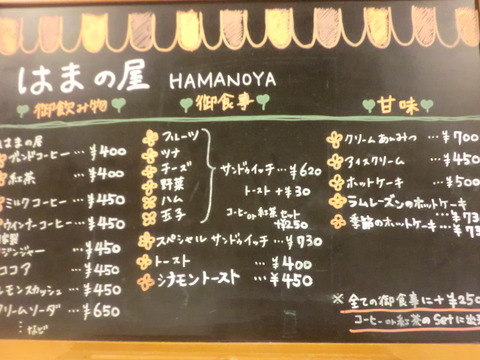 はまの屋 HAMANOYA
御飲み物
はまの屋
ブレンドコーヒー…¥400
紅茶…¥400
ミルクコーヒー…¥450
ウインナーコーヒー…¥450
ジンジャー…¥450
ココア…¥450
レモンスカッシュ…¥450
クリームソーダ…¥650
…など
御食事
フルーツ
ツナ
チーズ
野菜
ハム
玉子
サンドウィッチ…¥620
トースト+¥30
コーヒーor紅茶セット
+¥250
スペシャルサンドゥイッチ…¥730
トースト…¥400
シナモントースト…¥450
甘味
クリームあんみつ…¥700
アイスクリーム…¥450
ホットケーキ…¥500
ラムレーズンのホットケーキ
…¥73
季節のホットケーキ…¥73
※全ての御食事に+¥250
コーヒーor紅茶のsetに出来